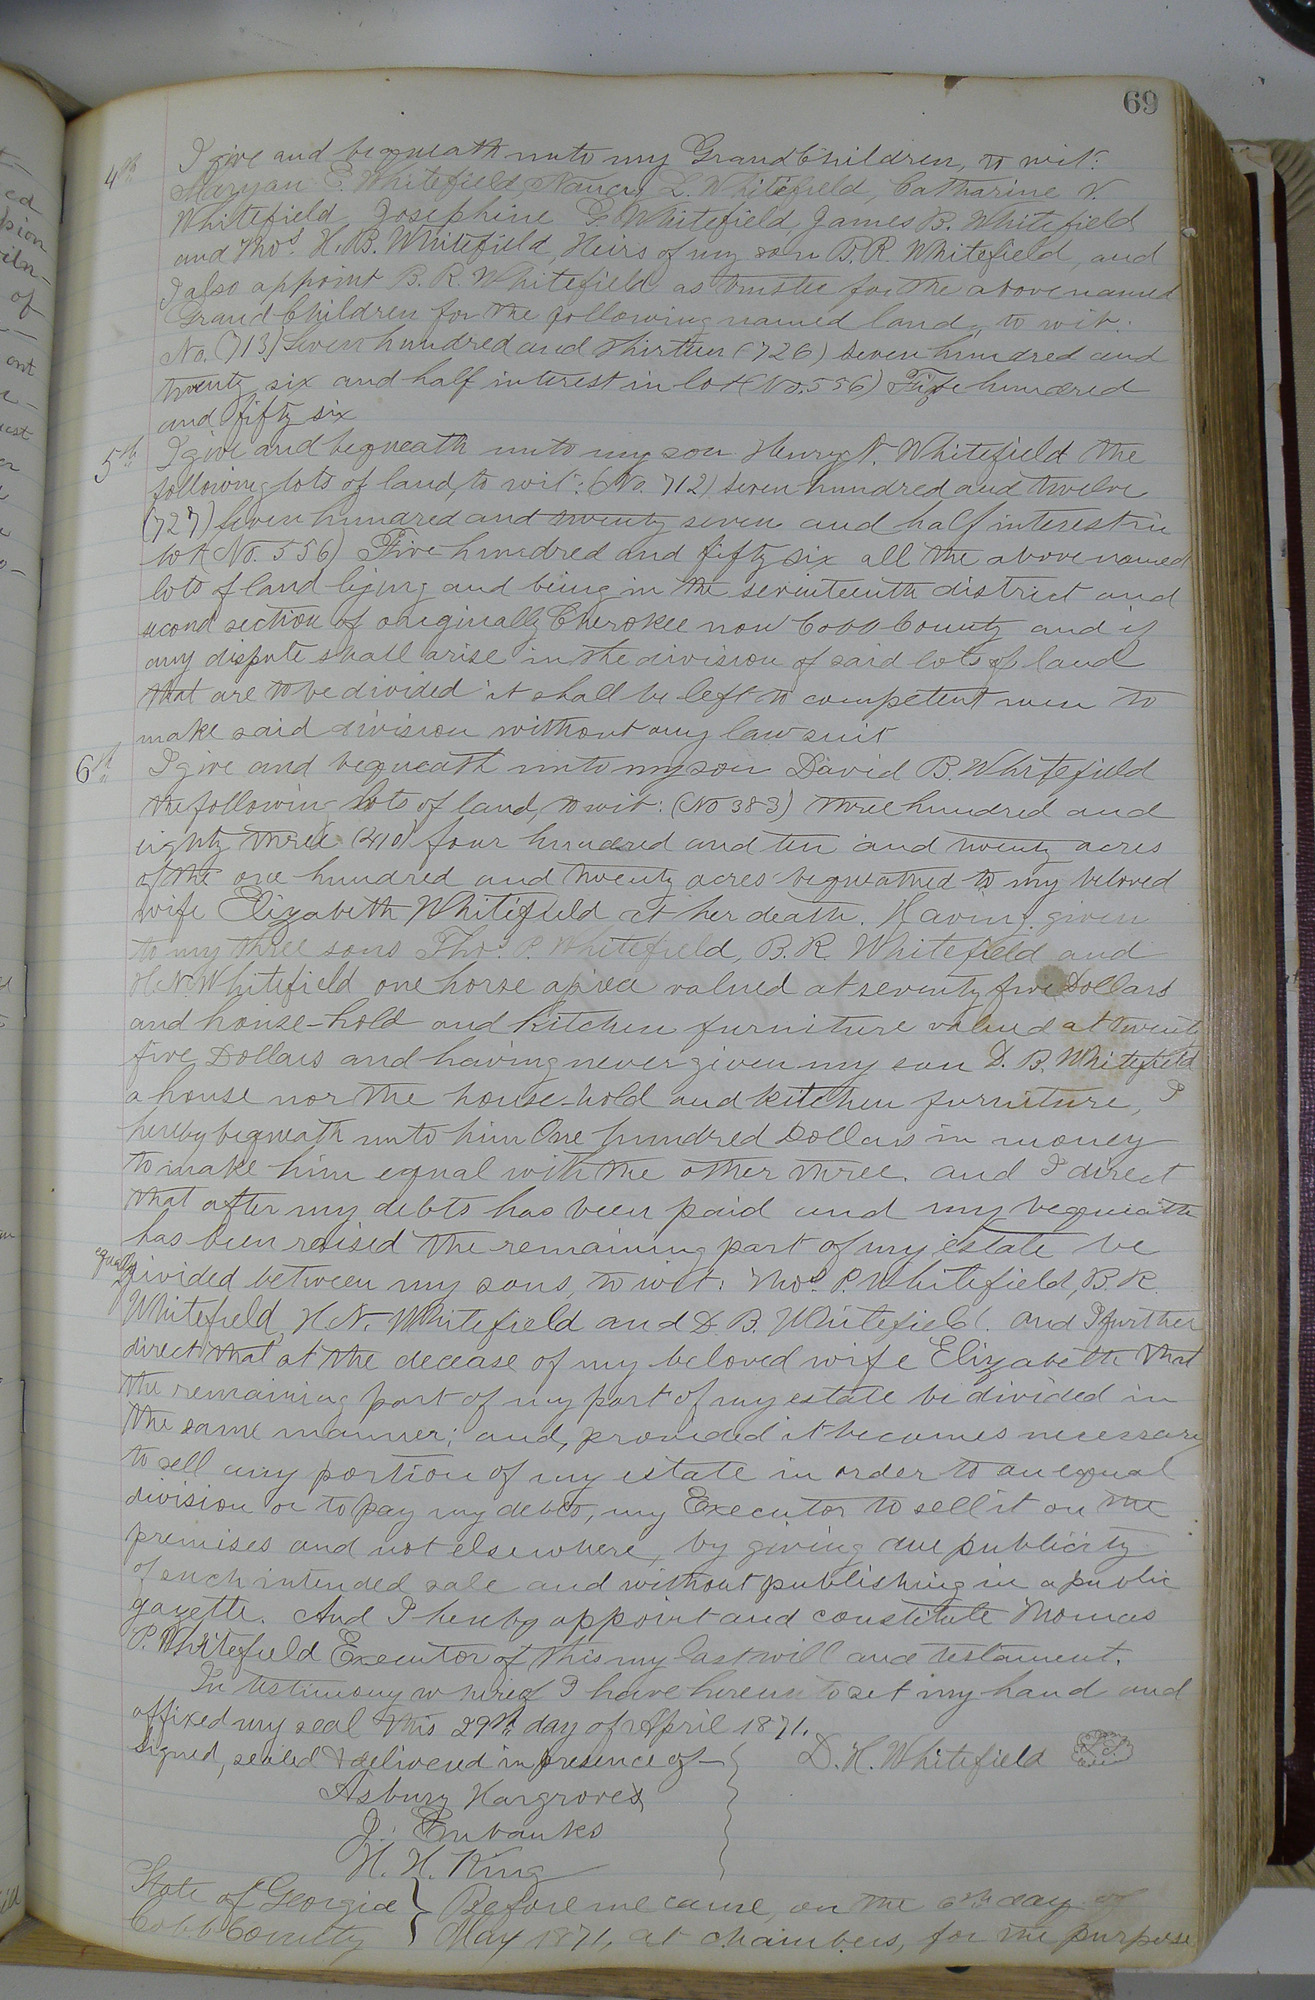 69
4th I give and bequeath unto my Grand Children, to wit:
Maryan E. Whitefield, Nancy L. Whitefield, Catharine V.
Whitefield, Josephine E. Whitefield, James B. Whitefield
and Thos. H. B. Whitefield, Heirs of my son B. R. Whitefield, and
I also appoint B. R. Whitefield as trustee for the above named
Grand Children for the following named land, to wit:
No. (713) Seven hundred and thirteen (726) seven hundred and
twenty six and half interest in lot (No. 556) Five hundred
and fifty six
5th I give and bequeath unto my son Henry N. Whitefield the
following lots of land, to wit: (No. 712) seven hundred and twelve
(727) seven hundred and twenty seven and half interest in
lot (No. 556) Five hundred and fifty six all the above named
lots of land lying and being in the seventeenth district and
second section of originally Cherokee now Cobb County and if
any dispute shall arise in the division of said lots of land
that are to be divided it shall be left to competent men to
make said division without any law suit
6th I give and bequeath unto my son David B. Whitefield
the following lots of land, to wit: (No 383) three hundred and
eighty three (410) four hundred and ten and twenty acres
of the one hundred and twenty acres bequeathed to my beloved
wife Elizabeth Whitefield at her death. Having given
to my three sons Thos. P. Whitefield, B. R. Whitefield and
H. N. Whitefield one horse apiece valued at seventy five Dollars
and house-hold and kitchen furniture valued at twenty
five Dollars and having never given my son D. B. Whitefield
a house nor the house-hold and kitchen furniture, I
hereby bequeath unto him One hundred Dollars in money
to make him equal with the other three. and I direct
that after my debts has been paid and my bequeath
has been raised the remaining part of my estate be
equally divided between my sons, to wit: Thos. P. Whitefield, B. R.
Whitefield, H. N. Whitefield and D. B. Whitefield. and I further
direct that at the decease of my beloved wife Elizabeth that
the remaining part of my part of my estate be divided in
the same manner; and, provided it becomes necessary
to sell any portion of my estate in order to an equal
division or to pay my debts, my Executor to sell it on the
premises and not elsewhere, by giving due publicity
of such intended sale and without publishing in a public
gazette. And I hereby appoint and constitute Thomas
P. Whitefield Executor of this my last will and testament.
In testimony whereof I have hereunto set my hand and
affixed my seal this 29th day of April 1871.
Signed, sealed & delivered in presence of D. H. Whitefield L.S.
Asbury Hargroves
J. Eubanks
H. H. King
State of Georgia } Before me came, on the 6th day of
Cobb County } May 1871, at chambers, for the purpose